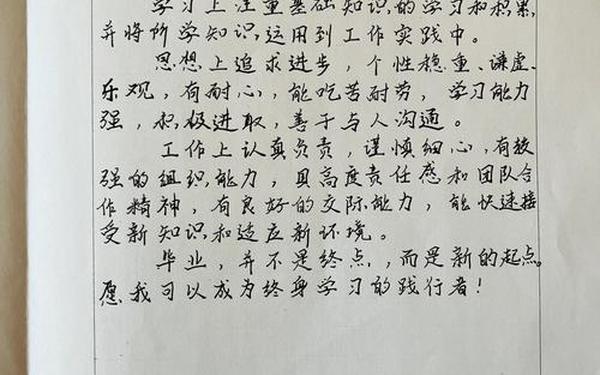 学习上注重基础知识的学习和积累,
并将所学知识运用到工作实践中。
思想上追求进步，个性稳重、谦虚、
乐观，有耐心，能吃苦耐劳，学习能力
强，积极进取，善于与人沟通。
工作上认真负责，谨慎细心，有较
强的组织能力，具高度责任感和团队合
作精神，有良好的交际能力，能快速接
受新知识和适应新环境。
毕业，并不是终点，而是新的起点。
愿我可以成为终身学习的践行者！